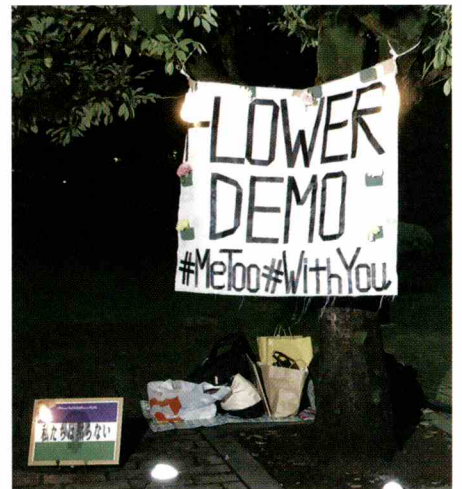 FLOWER
DEMO
#MeToo#WithYou
私たちは黙らない